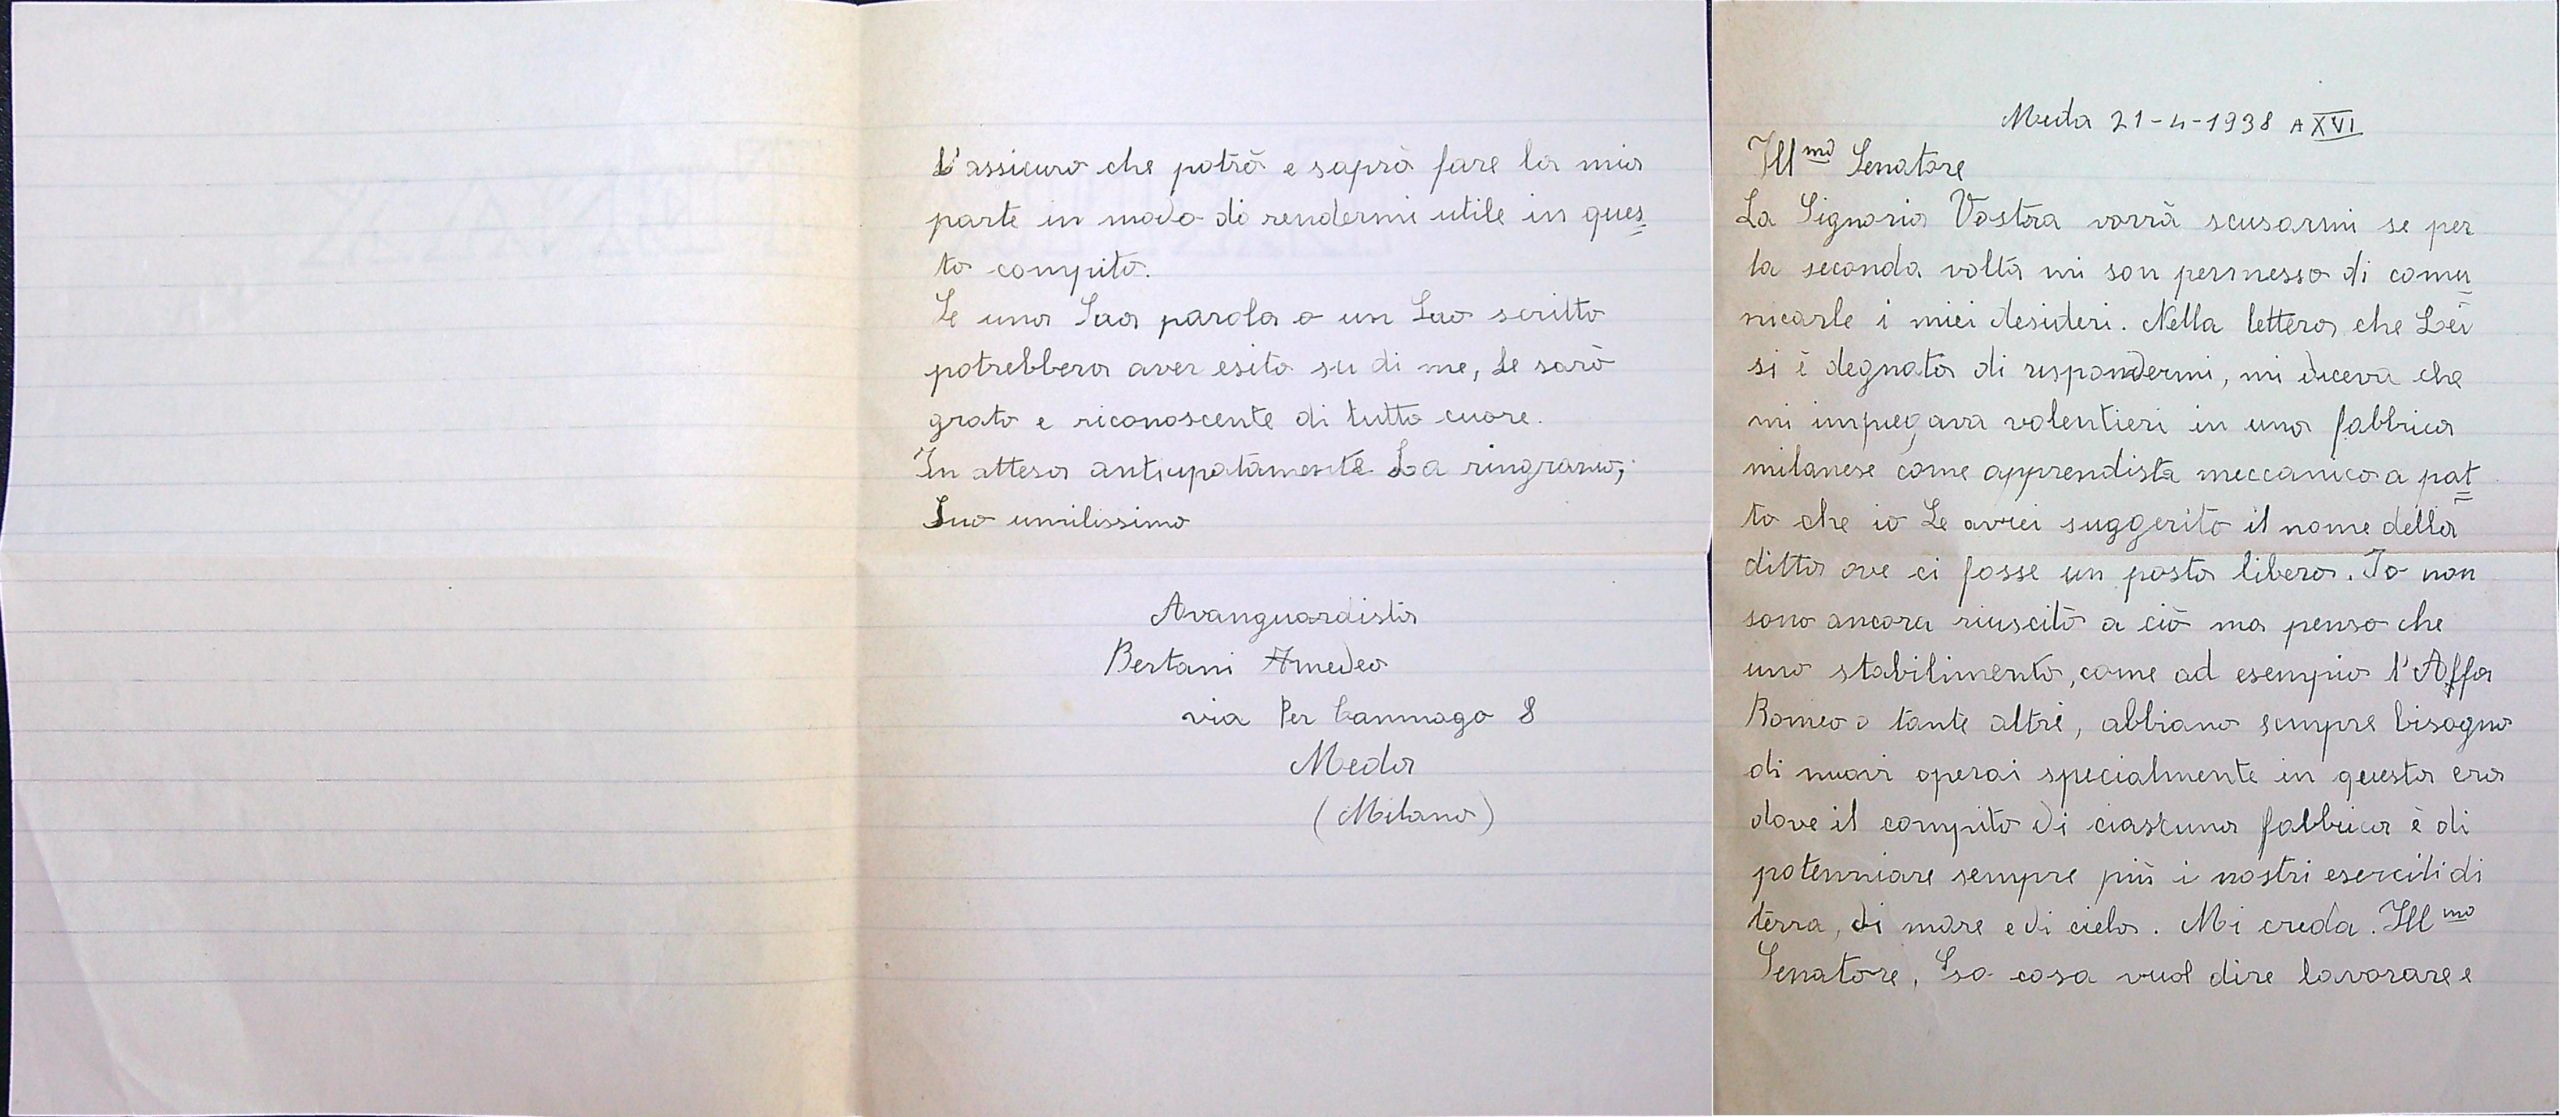 Meda 21-4-1938 A XVI
Ill.mo Senatore
La Signoria Vostra vorrà scusarmi se per
la seconda volta mi son permesso di comu=
nicarle i miei desideri. Nella lettera che Lei
si è degnata di rispondermi, mi diceva che
mi impiegava volentieri in una fabbrica
milanese come apprendista meccanico a pat=
to che io Le avrei suggerito il nome della
ditta ove ci fosse un posto libero. Io non
sono ancora riuscito a ciò ma penso che
uno stabilimento, come ad esempio l'Alfa
Romeo o tante altre, abbiano sempre bisogno
di nuovi operai specialmente in questa era
dove il compito di ciascuna fabbrica è di
potenziare sempre più i nostri eserciti di
terra, di mare e di cielo. Mi creda. Ill mo
Senatore, So cosa vuol dire lavorare e
L'assicuro che potrò e saprò fare la mia
parte in modo di rendermi utile in ques=
to compito.
Se una Sua parola o un Suo scritto
potrebbero aver esito su di me, Le sarò
grato e riconoscente di tutto cuore.
In attesa anticipatamente La ringrazio;
Suo umilissimo
Avanguardista
Bertani Amedeo
via Per Canmago 8
Meda
(Milano)